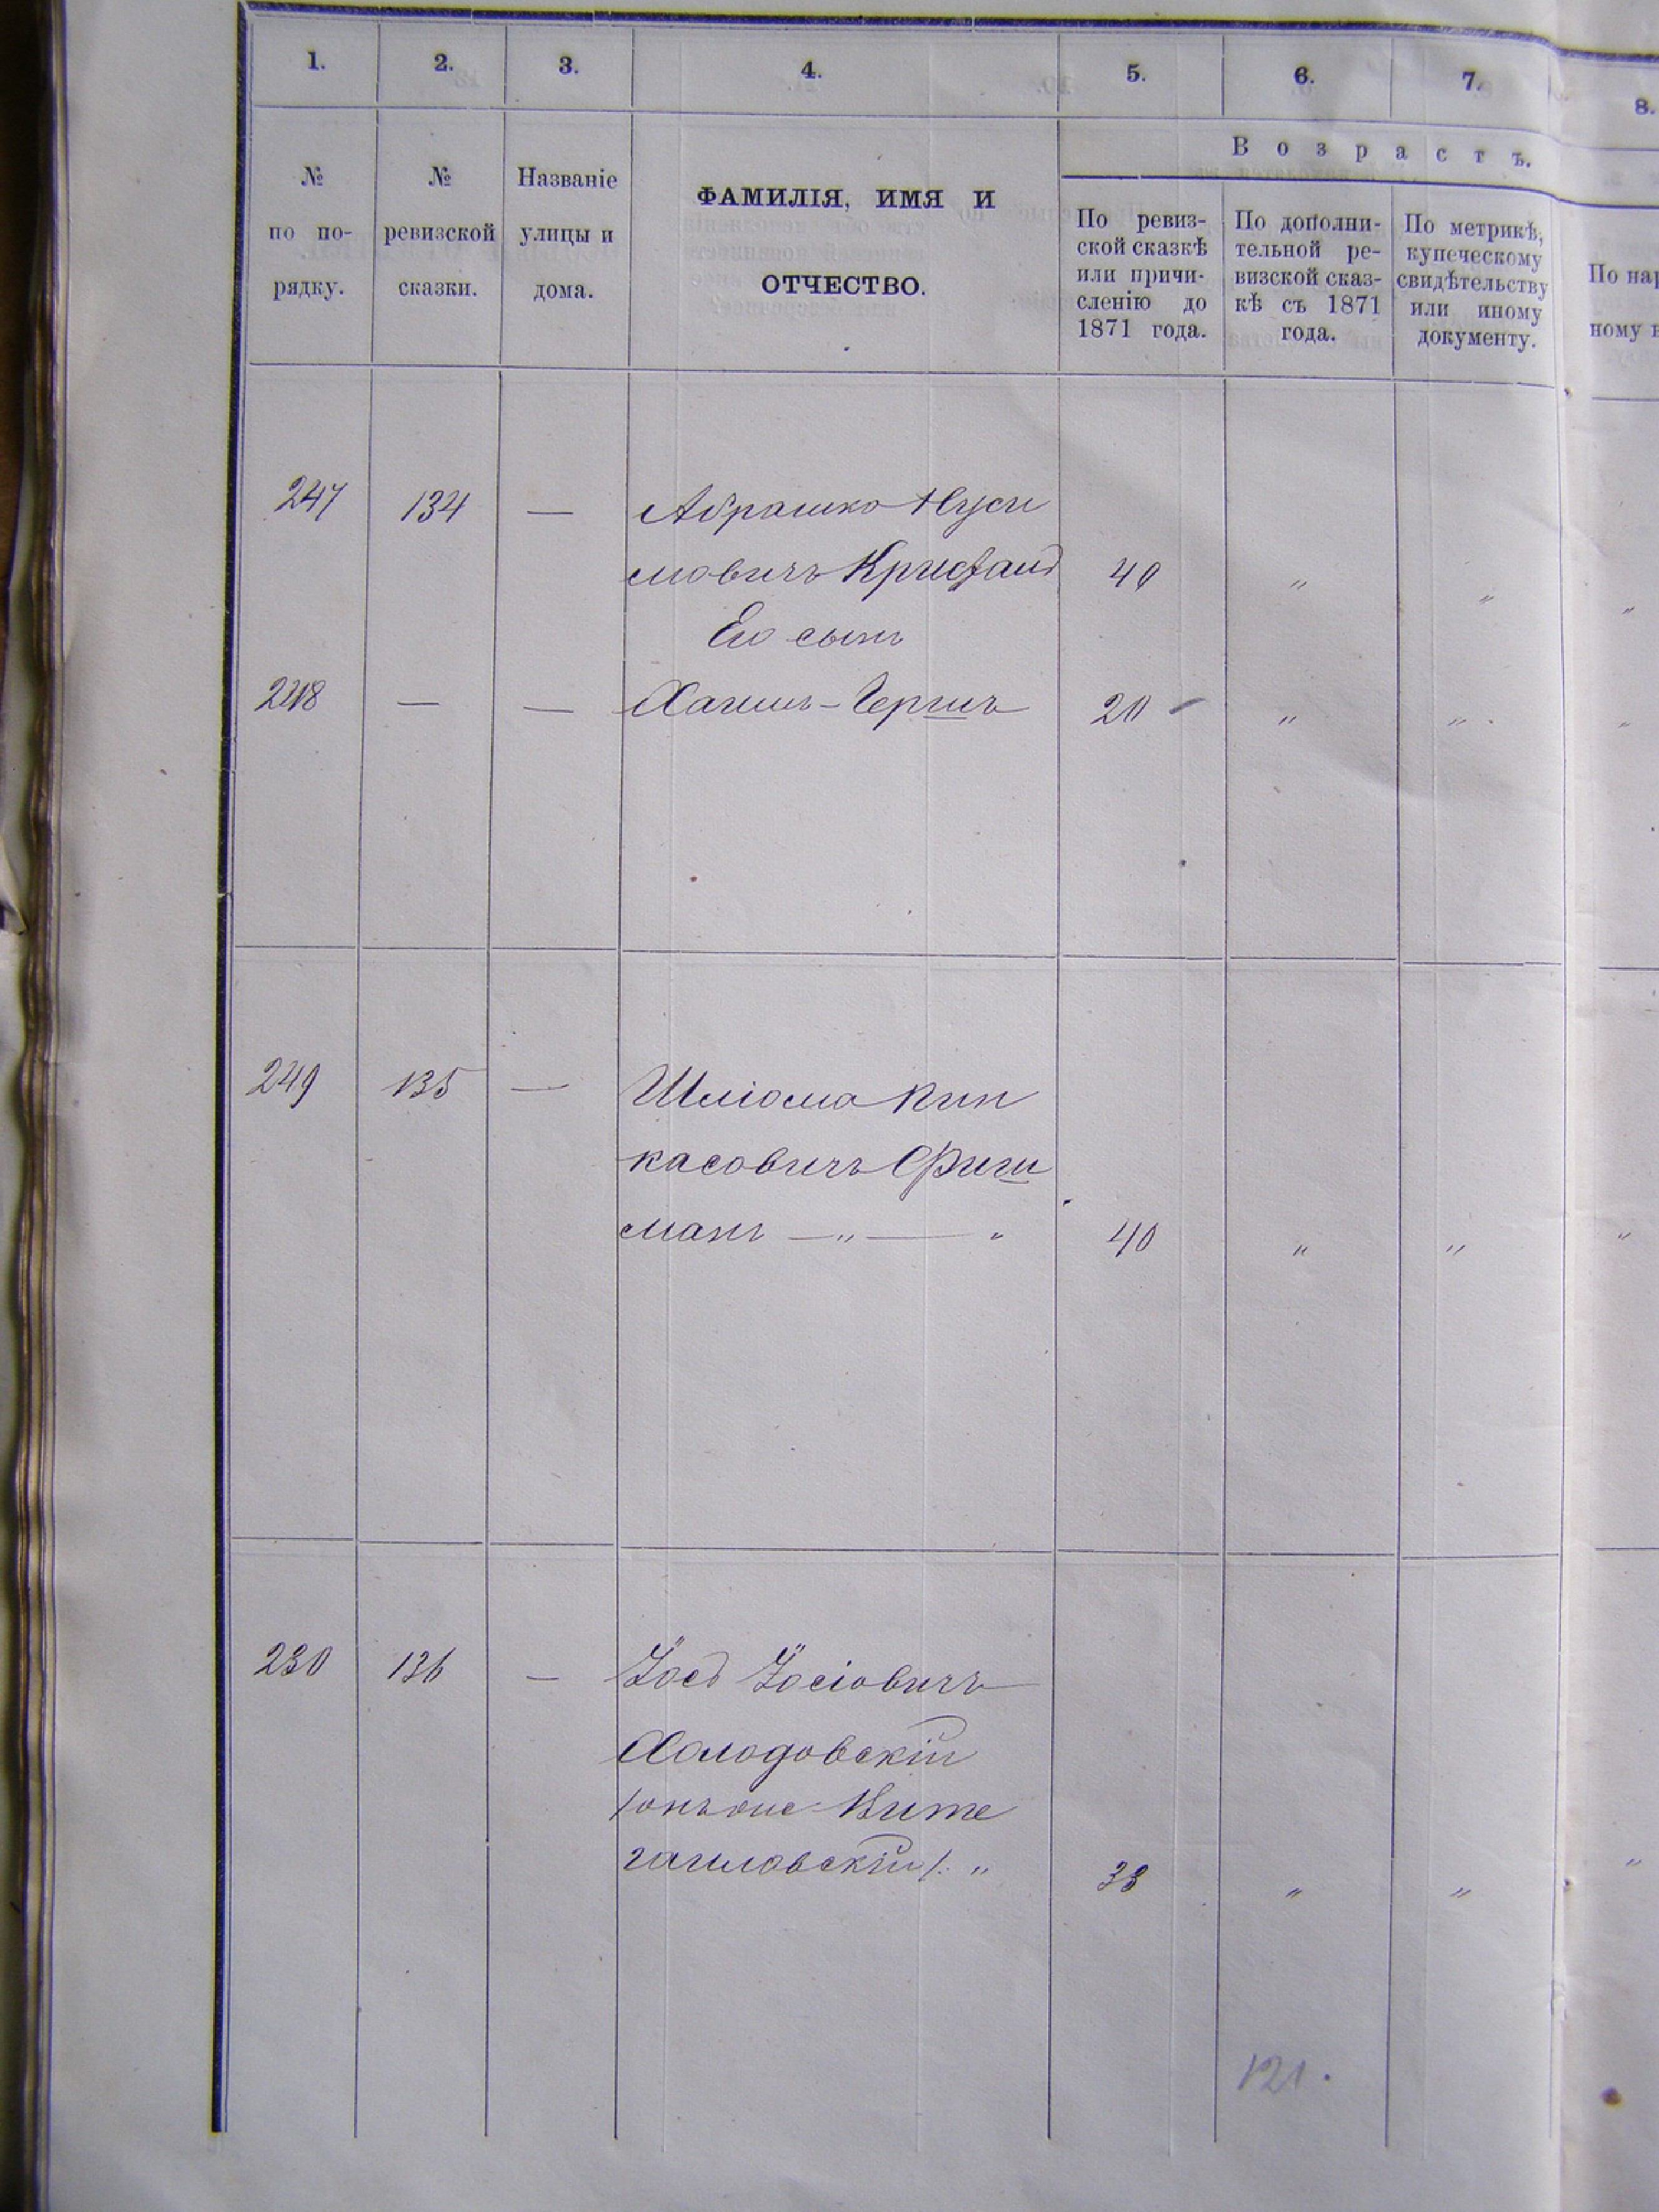 1. 2. 3. 4. 5. 6. 7. 8.
Возрастъ.
№ по по-рядку.
№ ревизской сказки.
Названіе улицы и дома.
ФАМИЛІЯ, ИМЯ И
ОТЧЕСТВО.
По ревиз-
ской сказкѣ
или причи-
сленію до
1871 года.
По дополни-
тельной ре-
визской сказ-
кѣ съ 1871
года.
По метрикѣ,
купеческому
свидѣтельству
или иному
документу.
По нар
ному в
247 134 — Абрашко Нуси
мовичъ 40 " " "
Его сынъ
248 — — Хаимъ-Гершъ 20 " " "
249 135 — Шліома Пин
касовичъ Фиш
манъ — " — " 40 " " "
250 136 — Іось Іосіовичъ
Холодовскій
/онъ же Вите
" 33 " " "
121.